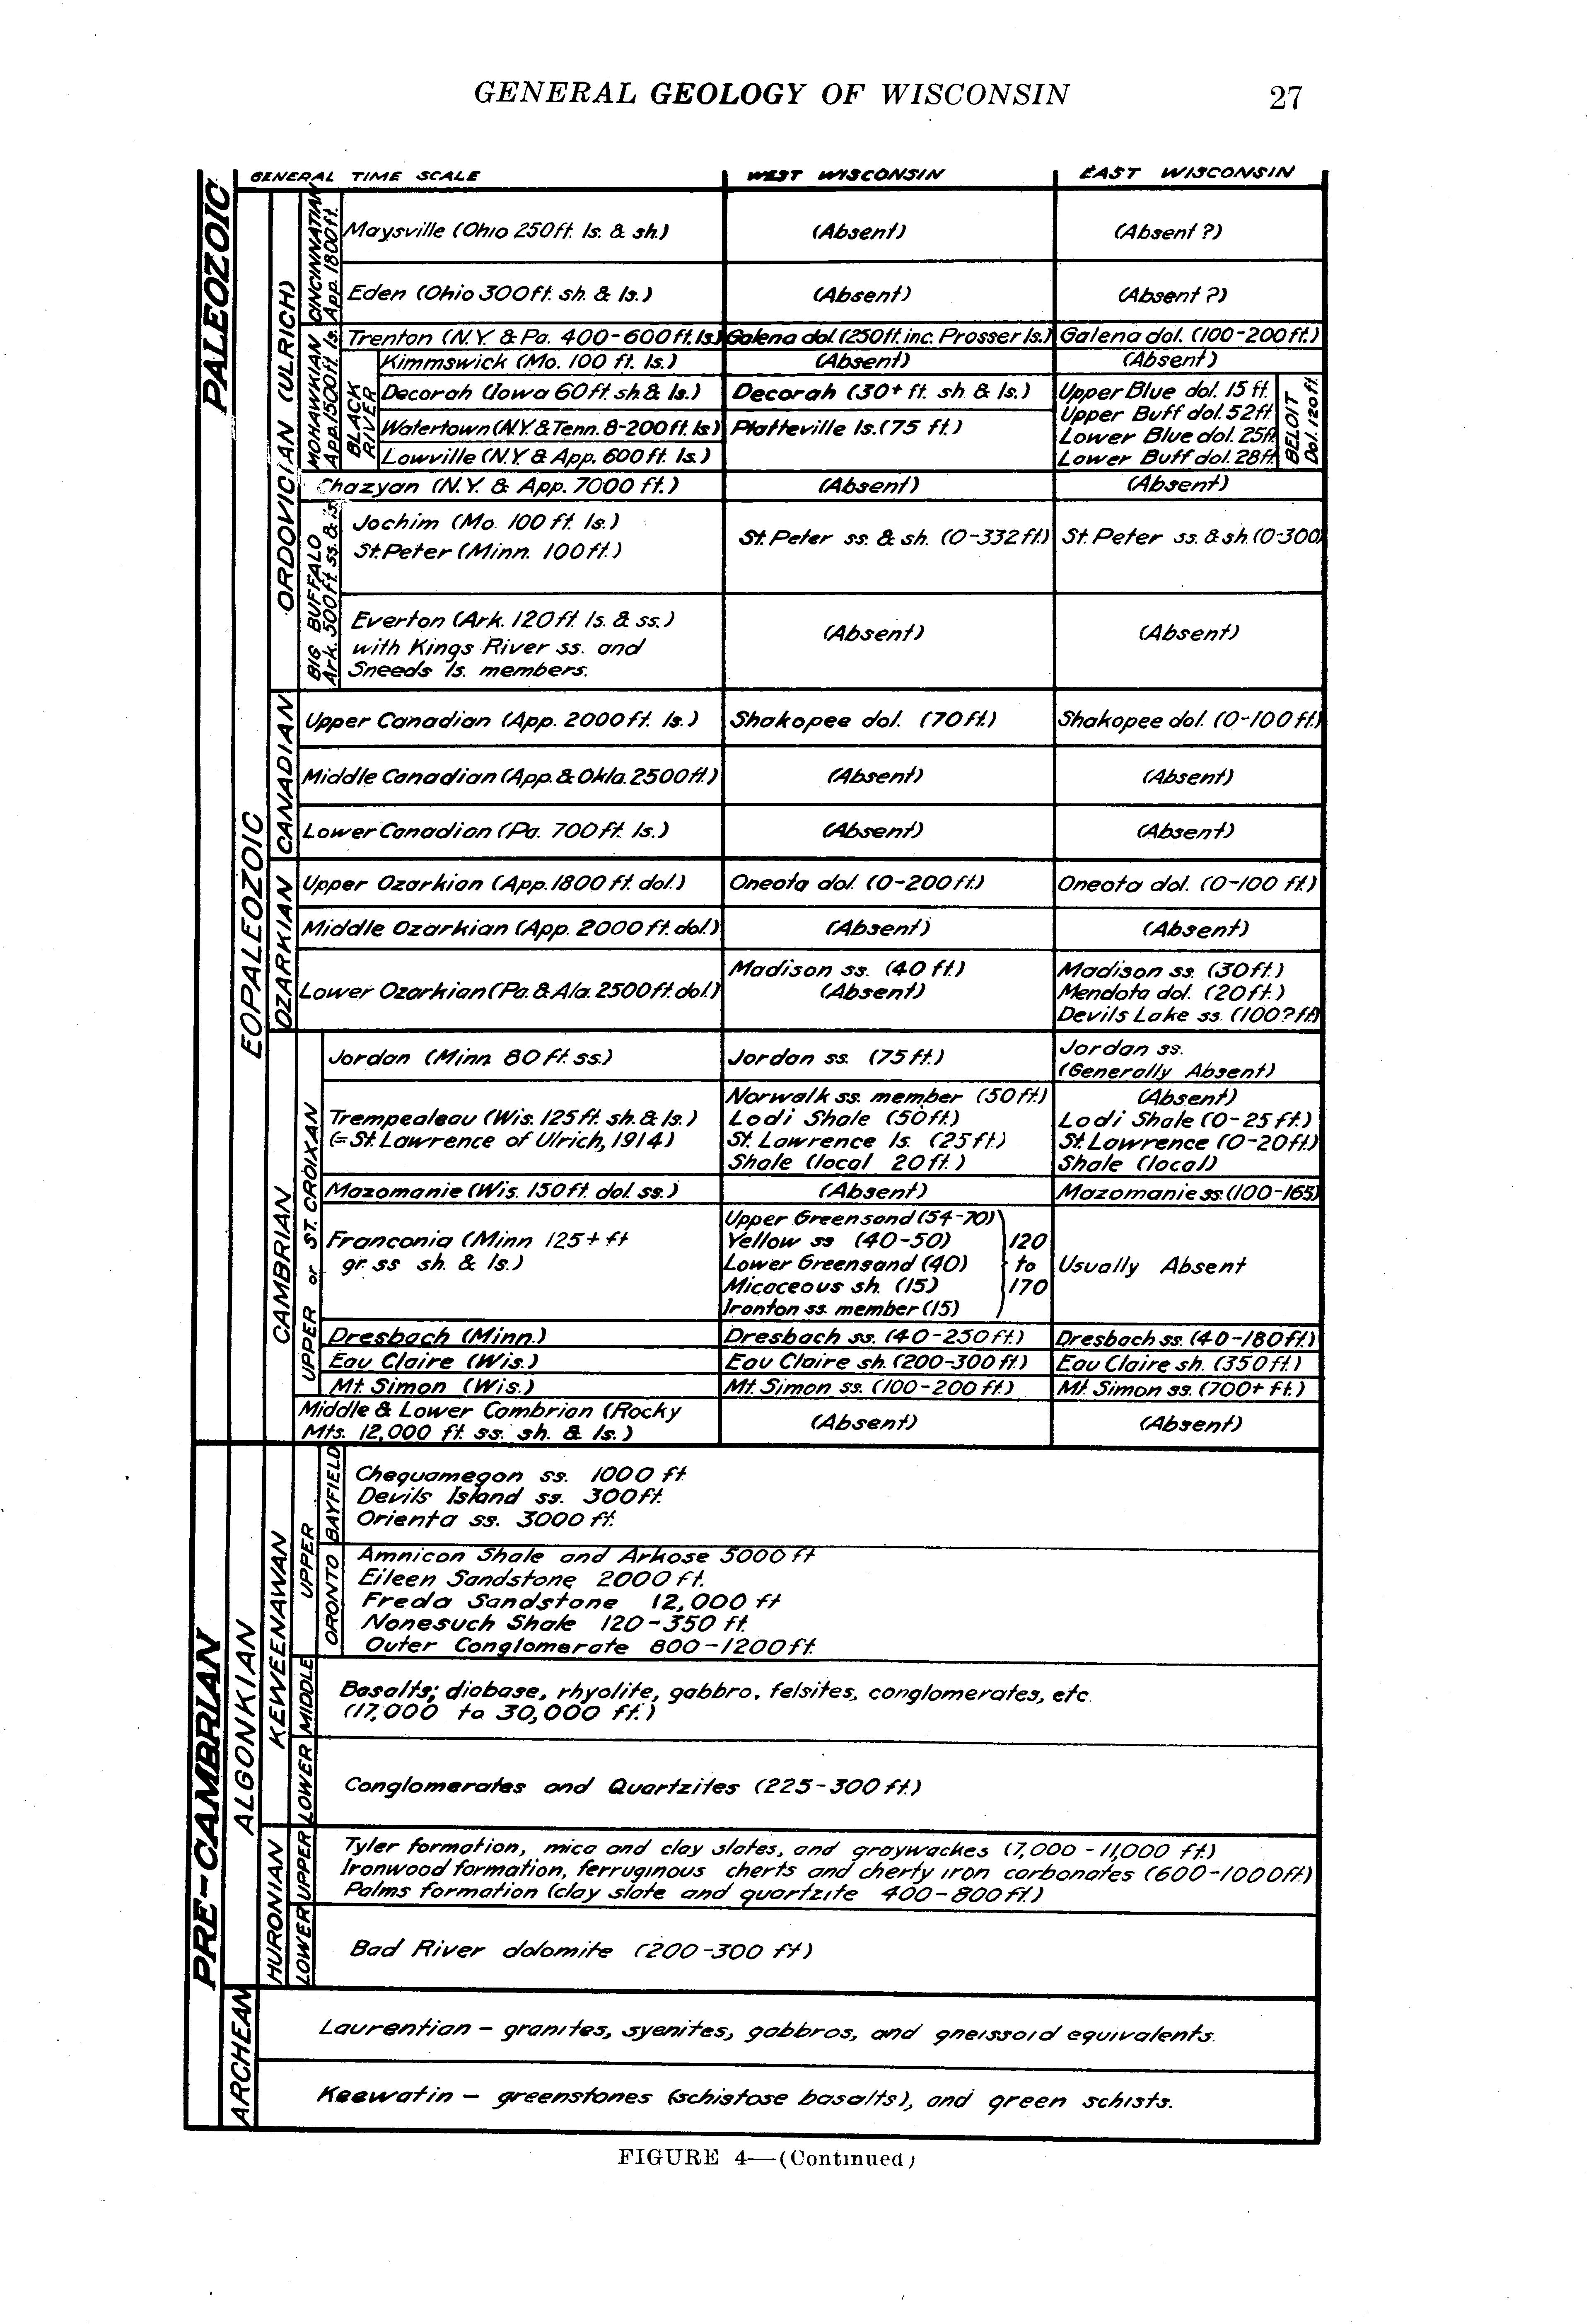 GENERAL GEOLOGY OF WISCONSIN 27
GENERAL TIME SCALE WEST WISCONSIN EAST WISCONSIN
PALEOZOIC
EOPALEOZOIC
ORDOVICIAN (ULRICH)
CINCINNATIAN
App. 1800 ft.
Maysville (Ohio 250 ft. ls. & sh.) (Absent) (Absent ?)
Eden (Ohio 300 ft. sh. & ls.) (Absent) (Absent ?)
MOHAWKIAN
App. 1500 ft. ls.
Trenton (N.Y. & Pa. 400-600 ft. ls.) Galena dol. (250 ft. inc. Prosser ls.) Galena dol. (100-200 ft.)
BLACK
RIVER
Kimmswick (Mo. 100 ft. ls.) (Absent) (Absent)
Decorah (Iowa 60 ft. sh & ls.) Decorah (30+ ft. sh. & ls.) Upper Blue dol. 15 ft.
Upper Buff dol. 52 ft.
Watertown (N.Y. & Tenn. 8-200 ft. ls) Platteville ls. (75 ft.) Lower Blue dol. 25 ft.
Lowville (N.Y. & App. 600 ft. ls.) Lower Buff dol. 28 ft.
BELOIT
Dol. 120 ft.
Chazyan (N.Y. & App. 7000 ft.) (Absent) (Absent)
BIG BUFFALO
Ark. 500 ft. ss. & ls.
Jochim (Mo. 100 ft. ls.)
St. Peter (Minn. 100 ft.) St. Peter ss. & sh. (0-332 ft.) St. Peter ss. & sh. (0-300)
Everton (Ark. 120 ft. ls. & ss.)
with Kings River ss. and (Absent) (Absent)
Sneeds ls. members.
CANADIAN
Upper Canadian (App. 2000 ft. ls.) Shakopee dol. (70 ft.) Shakopee dol. (0-100 ft.)
Middle Canadian (App. & Okla. 2500 ft.) (Absent) (Absent)
Lower Canadian (Pa. 700 ft. ls.) (Absent) (Absent)
OZARKIAN
Upper Ozarkian (App. 1800 ft. dol.) Oneota dol. (0-200 ft.) Oneota dol. (0-100 ft.)
Middle Ozarkian (App. 2000 ft. dol.) (Absent) (Absent)
Lower Ozarkian (Pa. & Ala. 2500 ft. dol.) Madison ss. (40 ft.) Madison ss. (30 ft.)
(Absent) Mendota dol. (20 ft.)
Devils Lake ss. (100? ft)
CAMBRIAN
UPPER or ST. CROIXAN
Jordan (Minn. 80 ft. ss.) Jordan ss. (75 ft.) Jordan ss.
(Generally Absent)
Norwalk ss. member (50 ft.) (Absent)
Trempealeau (Wis. 125 ft. sh. & ls.) Lodi Shale (50 ft.) Lodi Shale (0-25 ft.)
(= St. Lawrence of Ulrich, 1914) St. Lawrence ls. (25 ft.) St. Lawrence (0-20 ft.)
Shale (local 20 ft.) Shale (local)
Mazomanie (Wis. 150 ft. dol. ss.) (Absent) Mazomanie ss. (100-165)
Upper Greensand (54-70)
Franconia (Minn 125+ ft Yellow ss (40-50) 120
gr. ss sh. & ls.) Lower Greensand (40) to Usually Absent
Micaceous sh. (15) 170
Ironton ss. member (15)
Dresbach (Minn.) Dresbach ss. (40-250 ft.) Dresbach ss. (40-180 ft.)
Eau Claire (Wis.) Eau Claire sh. (200-300 ft.) Eau Claire sh. (350 ft.)
Mt. Simon (Wis.) Mt. Simon ss. (100-200 ft.) Mt. Simon ss. (700+ ft.)
Middle & Lower Cambrian (Rocky (Absent) (Absent)
Mts. 12,000 ft. ss. sh. & ls.)
PRE-CAMBRIAN
ALGONKIAN
KEWEENAWAN
UPPER
BAYFIELD
Chequamegon ss. 1000 ft.
Devils Island ss. 300 ft.
Orienta ss. 3000 ft.
ORONTO
Amnicon Shale and Arkose 5000 ft
Eileen Sandstone 2000 ft.
Freda Sandstone 12,000 ft
Nonesuch Shale 120-350 ft.
Outer Conglomerate 800-1200 ft.
MIDDLE
Basalts; diabase, rhyolite, gabbro, felsites, conglomerates, etc.
(17,000 to 30,000 ft.)
LOWER
Conglomerates and Quartzites (225-300 ft.)
HURONIAN
UPPER
Tyler formation, mica and clay slates, and graywackes (7,000-11,000 ft.)
Ironwood formation, ferruginous cherts and cherty iron carbonates (600-1000 ft.)
Palms formation (clay slate and quartzite 400-800 ft.)
LOWER
Bad River dolomite (200-300 ft)
ARCHEAN
Laurentian - granites, syenites, gabbros, and gneissoid equivalents.
Keewatin - greenstones (schistose basalts), and green schists.
FIGURE 4—(Continued)